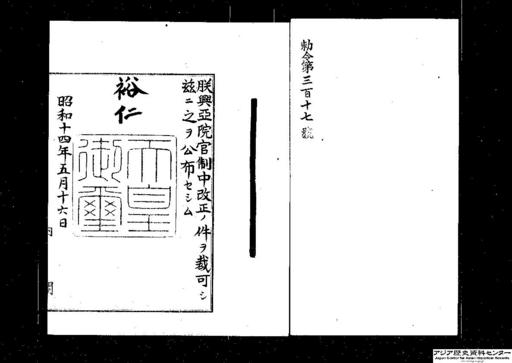 勅令第三百十七號
朕興亞院官制中改正ノ件ヲ裁可シ
玆ニ之ヲ公布セシム
裕仁
天皇御璽
昭和十四年五月十六日
内閣
アジア歴史資料センター
Japan Center for Asian Historical Records